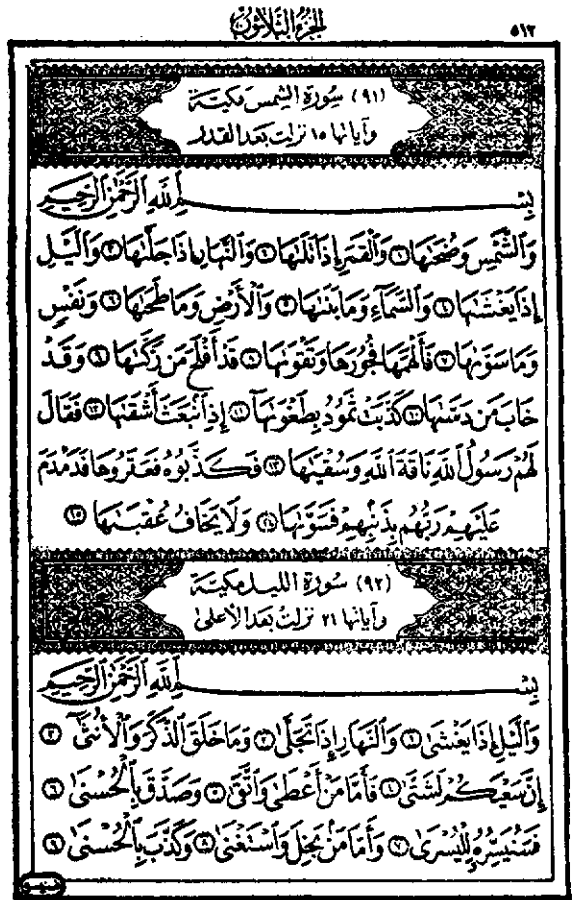 الجزء الثلاثون
٥١٢
(٩١) سورة الشمس مكية
وآياتها ١٥ نزلت بعد القدر
بِسْمِ ٱللَّهِ ٱلرَّحْمَٰنِ ٱلرَّحِيمِ
وَٱلشَّمْسِ وَضُحَىٰهَا ١ وَٱلْقَمَرِ إِذَا تَلَىٰهَا ٢ وَٱلنَّهَارِ إِذَا جَلَّىٰهَا ٣ وَٱلَّيْلِ
إِذَا يَغْشَىٰهَا ٤ وَٱلسَّمَآءِ وَمَا بَنَىٰهَا ٥ وَٱلْأَرْضِ وَمَا طَحَىٰهَا ٦ وَنَفْسٍ
وَمَا سَوَّىٰهَا ٧ فَأَلْهَمَهَا فُجُورَهَا وَتَقْوَىٰهَا ٨ قَدْ أَفْلَحَ مَن زَكَّىٰهَا ٩ وَقَدْ
خَابَ مَن دَسَّىٰهَا ١٠ كَذَّبَتْ ثَمُودُ بِطَغْوَىٰهَآ ١١ إِذِ ٱنۢبَعَثَ أَشْقَىٰهَا ١٢ فَقَالَ
لَهُمْ رَسُولُ ٱللَّهِ نَاقَةَ ٱللَّهِ وَسُقْيَىٰهَا ١٣ فَكَذَّبُوهُ فَعَقَرُوهَا فَدَمْدَمَ
عَلَيْهِمْ رَبُّهُم بِذَنۢبِهِمْ فَسَوَّىٰهَا ١٤ وَلَا يَخَافُ عُقْبَىٰهَا ١٥
(٩٢) سورة الليل مكية
وآياتها ٢١ نزلت بعد الأعلى
بِسْمِ ٱللَّهِ ٱلرَّحْمَٰنِ ٱلرَّحِيمِ
وَٱلَّيْلِ إِذَا يَغْشَىٰ ١ وَٱلنَّهَارِ إِذَا تَجَلَّىٰ ٢ وَمَا خَلَقَ ٱلذَّكَرَ وَٱلْأُنثَىٰٓ ٣
إِنَّ سَعْيَكُمْ لَشَتَّىٰ ٤ فَأَمَّا مَنْ أَعْطَىٰ وَٱتَّقَىٰ ٥ وَصَدَّقَ بِٱلْحُسْنَىٰ ٦
فَسَنُيَسِّرُهُۥ لِلْيُسْرَىٰ ٧ وَأَمَّا مَنۢ بَخِلَ وَٱسْتَغْنَىٰ ٨ وَكَذَّبَ بِٱلْحُسْنَىٰ ٩